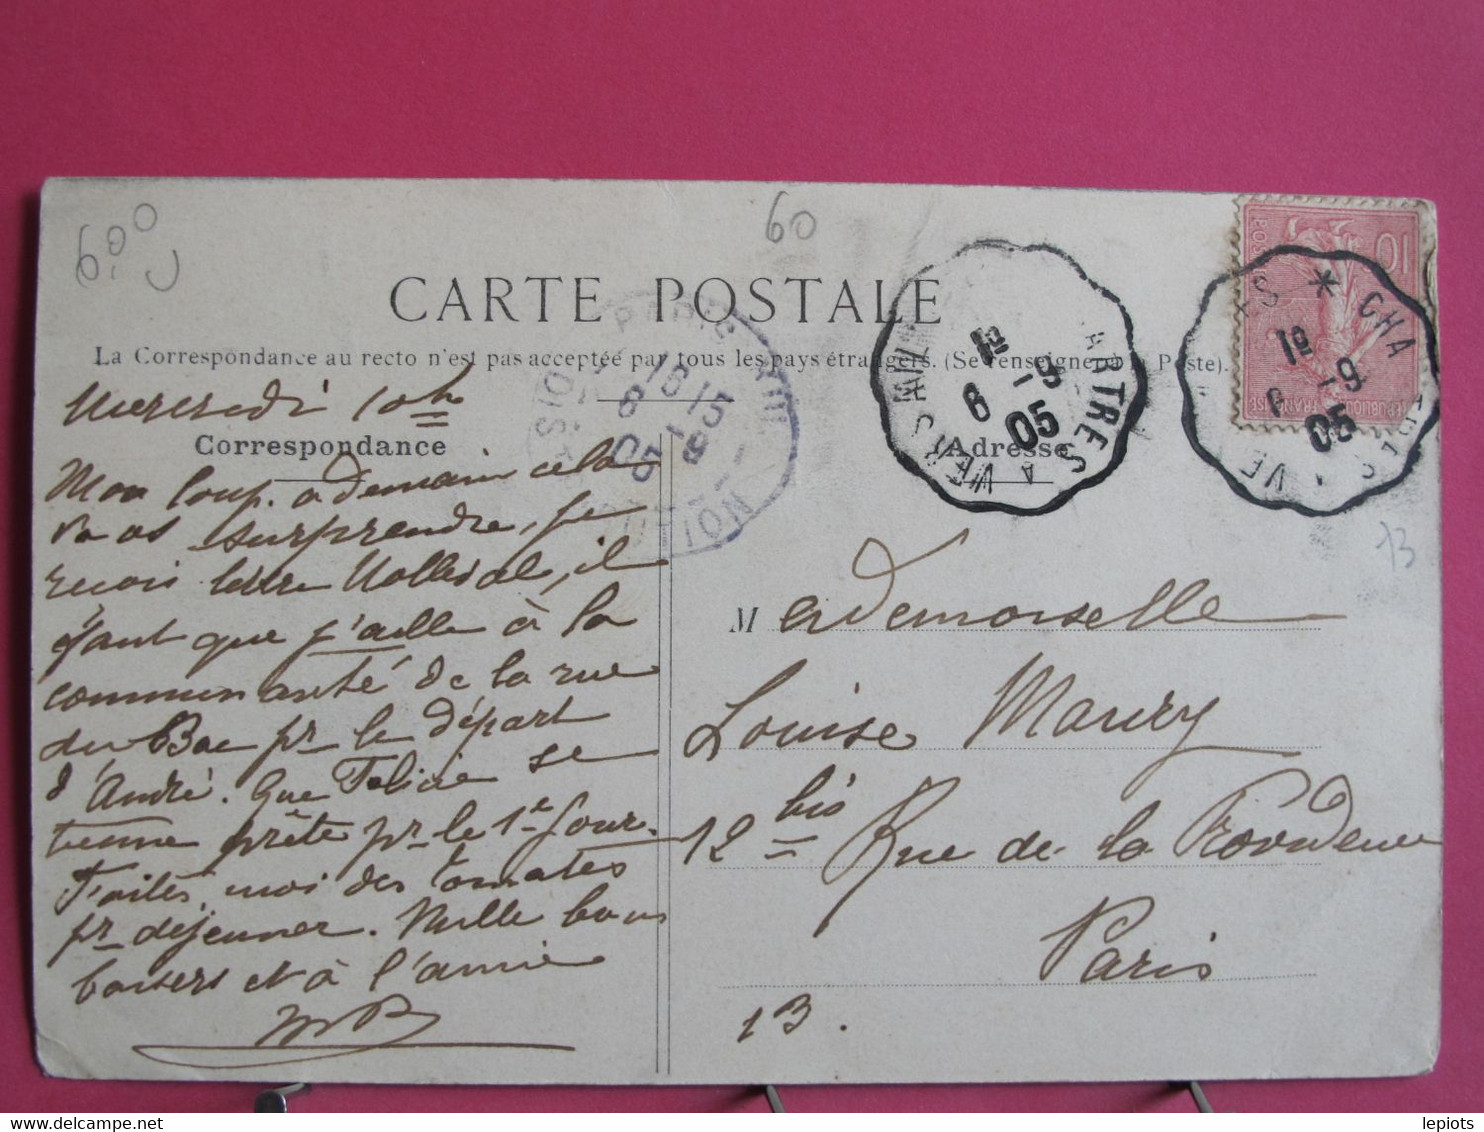 60
CARTE POSTALE
La Correspondance au recto n'est pas acceptée par tous les pays étrangers. (Se renseigner à la Poste).
Mercredi 10h
Correspondance
Mon loup. a demain cela
va as surprendre, je
recois lettre Nolleval, il
faut que j'aille à la
communauté de la rue
du Bac pr le départ
d'André. Que Félicie se
tienne prête pr le 1er jour.
Faites moi des tomates
pr déjeuner. Mille bons
baisers et à l'amie
MB
Adresse
Mademoiselle
Louise Maury
12 bis Rue de la Providence
Paris
13.
CHARTRES A VERSAILL
1º
6 -9
05
ES * CHA
1º
6 -9
05
A VE
PARIS XIII
DIS
10
POSTES
REPUBLIQUE FRANÇAISE
13
lepiots
delcampe.net